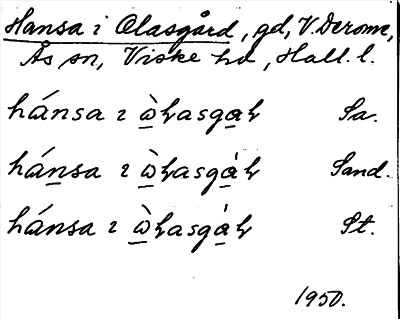 Hansa i Olasgård, gd, V. Derome,
Ås sn, Viske hd, Hall. l.
hánsa ɩ ὼ̲ɫasga̲ɫ Sa.
hán̲sa ɩ ὼ̲ɫasgá̲ɫ Sand.
hánsa ɩ ὼ̲ɫasgá̲ɫ St.
1950.